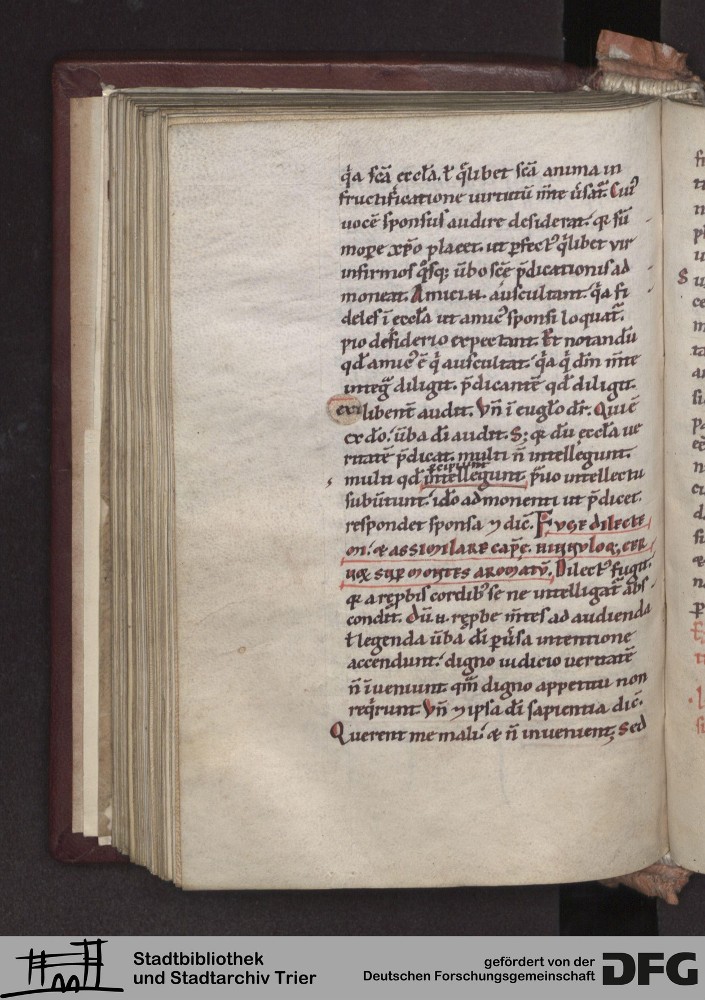 q̇a scā eccła. ł q̇libet scā anima in
fructificatione uirtutū m̄te ūsat᷑. Cui᷒
uocē sponsus audire desiderat. & sū
mope xp̄o placet. ut pfect᷒ q̇libet uir
infirmos q̊sq; ūbo scē p̄dicationis ad
moneat. Amici .n. auscultant. q̇a fi
deles ī eccła ut amic᷒ sponsi loquat᷑.
pio desiderio expectant. Et notandū
qđ amic᷒ ē q̇ auscultat. q̇a q̇ dm̄ m̄te
integ̃ diligit. p̄dicantē qđ diligit.
libent̄ audit. Vn̄ ī eugło dr̄. Qui ē
ex do. ūba di audit. S; & dū eccła ue
ritatē p̄dicat. multi n̄ intellegunt.
multi qđ intellegunt p̄uo intellectu
subūtunt. ido admonenti ut p̄dicet.
respondet sponsa ⁊ dic̄. Fuge dilecte
mi. & assimilare capẹ. hinnuloq; cer
uoꝝ sup montes aromatū. Dilect᷒ fugit.
& a repbis cordib᷒ se ne intelligat᷑ abs
condit. Dū .n. repbe m̄tes ad audienda
ł legenda ūba di puersa intentione
accendunt. digno iudicio ueritatē
n̄ īueniunt. qm̄ digno appetitu non
req̇runt. Vn̄ ⁊ ipsa di sapientia dic̄.
Querent me mali. & n̄ inuenient; Sed
Stadtbibliothek
und Stadtarchiv Trier
gefördert von der
Deutschen Forschungsgemeinschaft
DFG